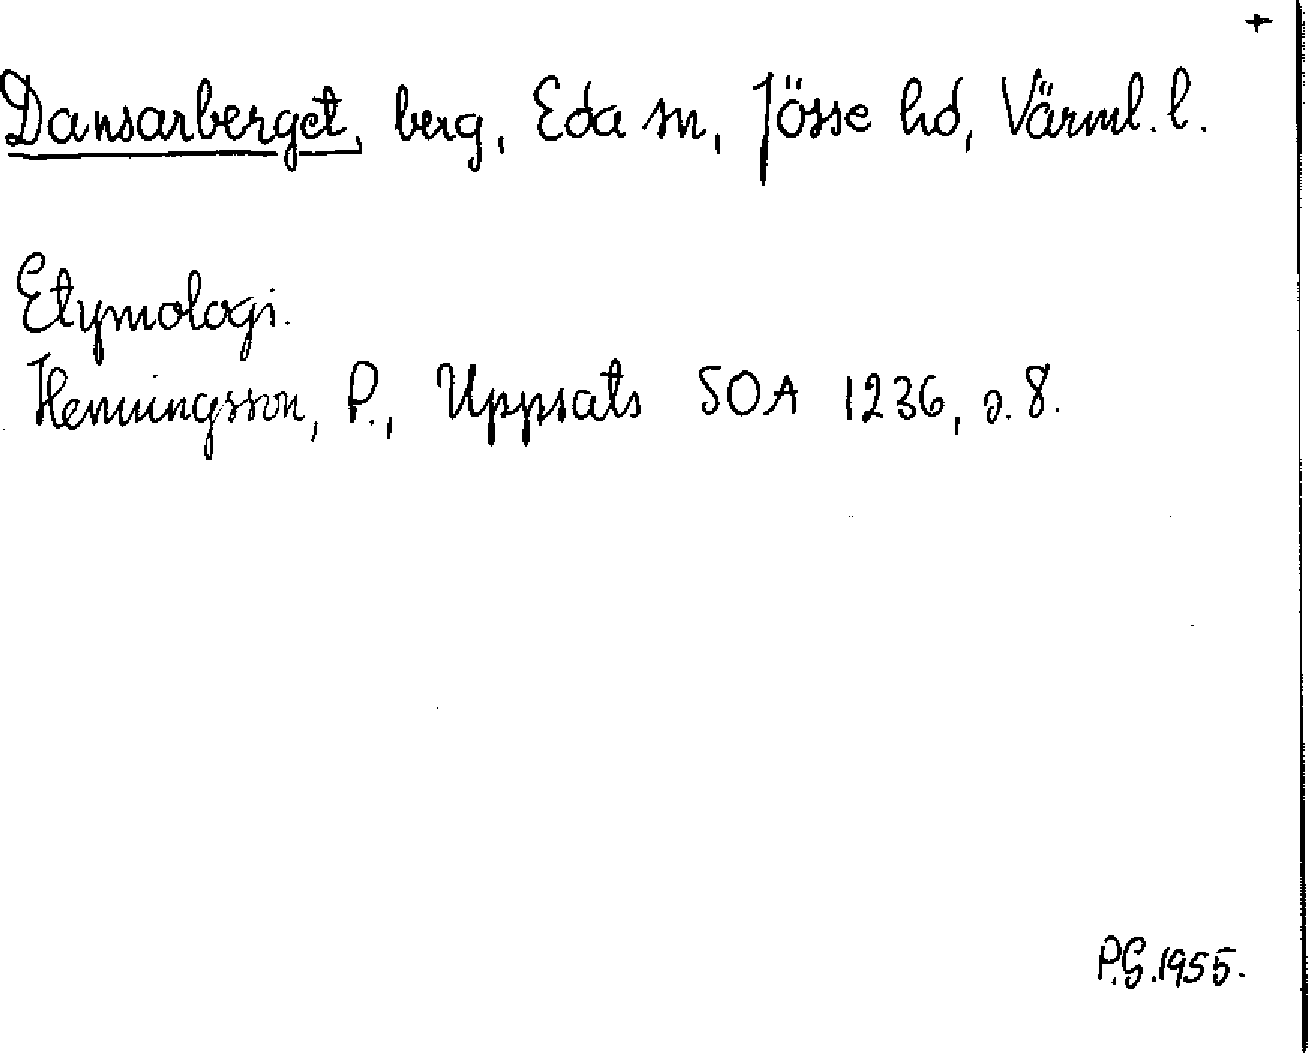 +
Dansarberget, berg, Eda sn, Jösse hd, Värml. l.
Etymologi.
Henningsson, P., Uppsats SOA 1236, s. 8.
P.G. 1955.